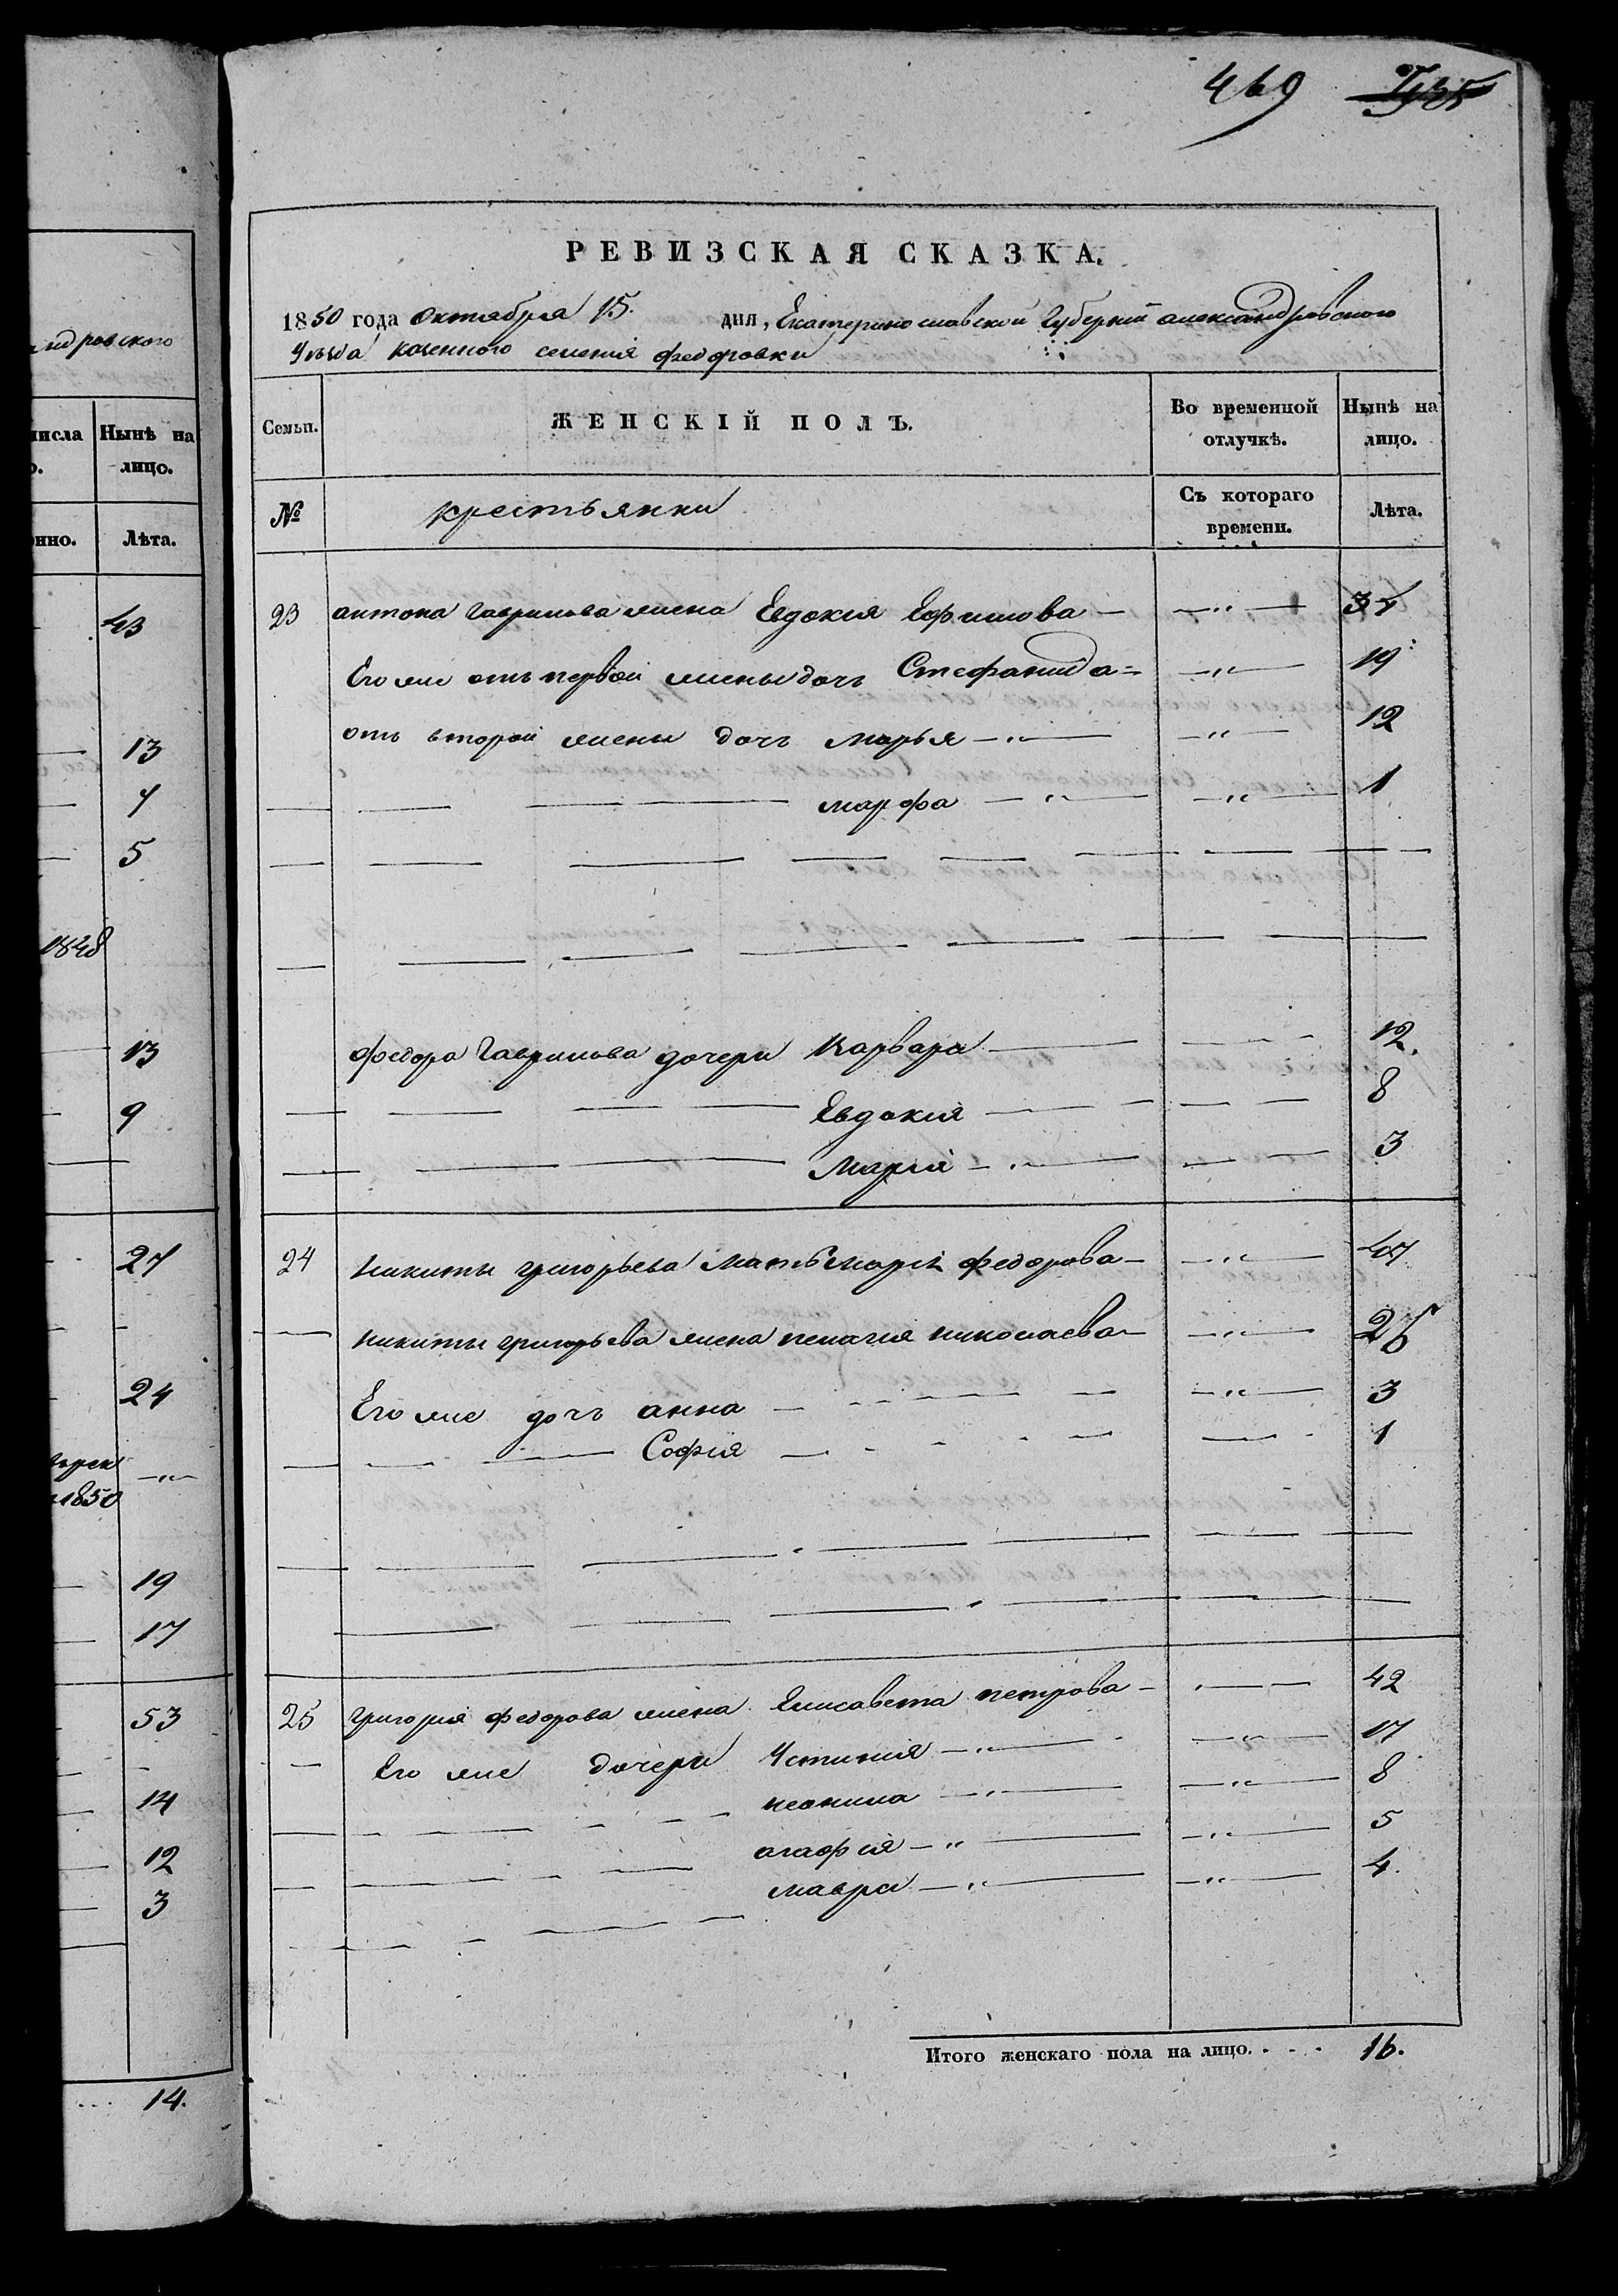 469
ндровского
числа Нынѣ на
о. лицо.
нно. Лѣта.
43
13
7
5
1848
13
9
27
24
1850
19
17
53
14
12
3
14.
РЕВИЗСКАЯ СКАЗКА.
1850 года Октября 15. дня, Екатеринославской Губерніи александровского
Уезда казенного селенія федоровки
Семьи. ЖЕНСКІЙ ПОЛЪ. Во временной отлучкѣ. Нынѣ на лицо.
№ крестьянки Съ котораго времени. Лѣта.
23 антона гаврилова жена Евдокия Ефимова — —„—
Его же отъ первой жены дочь Стефанида = —„— 19
отъ второй жены дочь марья —„— —„— 12
марфа —„— —„— 1
федора гаврилова дочери Варвара 12.
Евдокия 8
Марія 3
24 никиты григорьева мать марія федорова — —„— 47
никиты григорьева жена пелагия николаева — —„— 26
Его же дочь анна —„— 3
Софія 1
25 григория федорова жена Елисавета петрова — 42
Его же дочери Устиния —„— —„— 17
неонила —„— —„— 8
агафия —„— —„— 5
мавра —„— —„— 4.
Итого женскаго пола на лицо. 16.